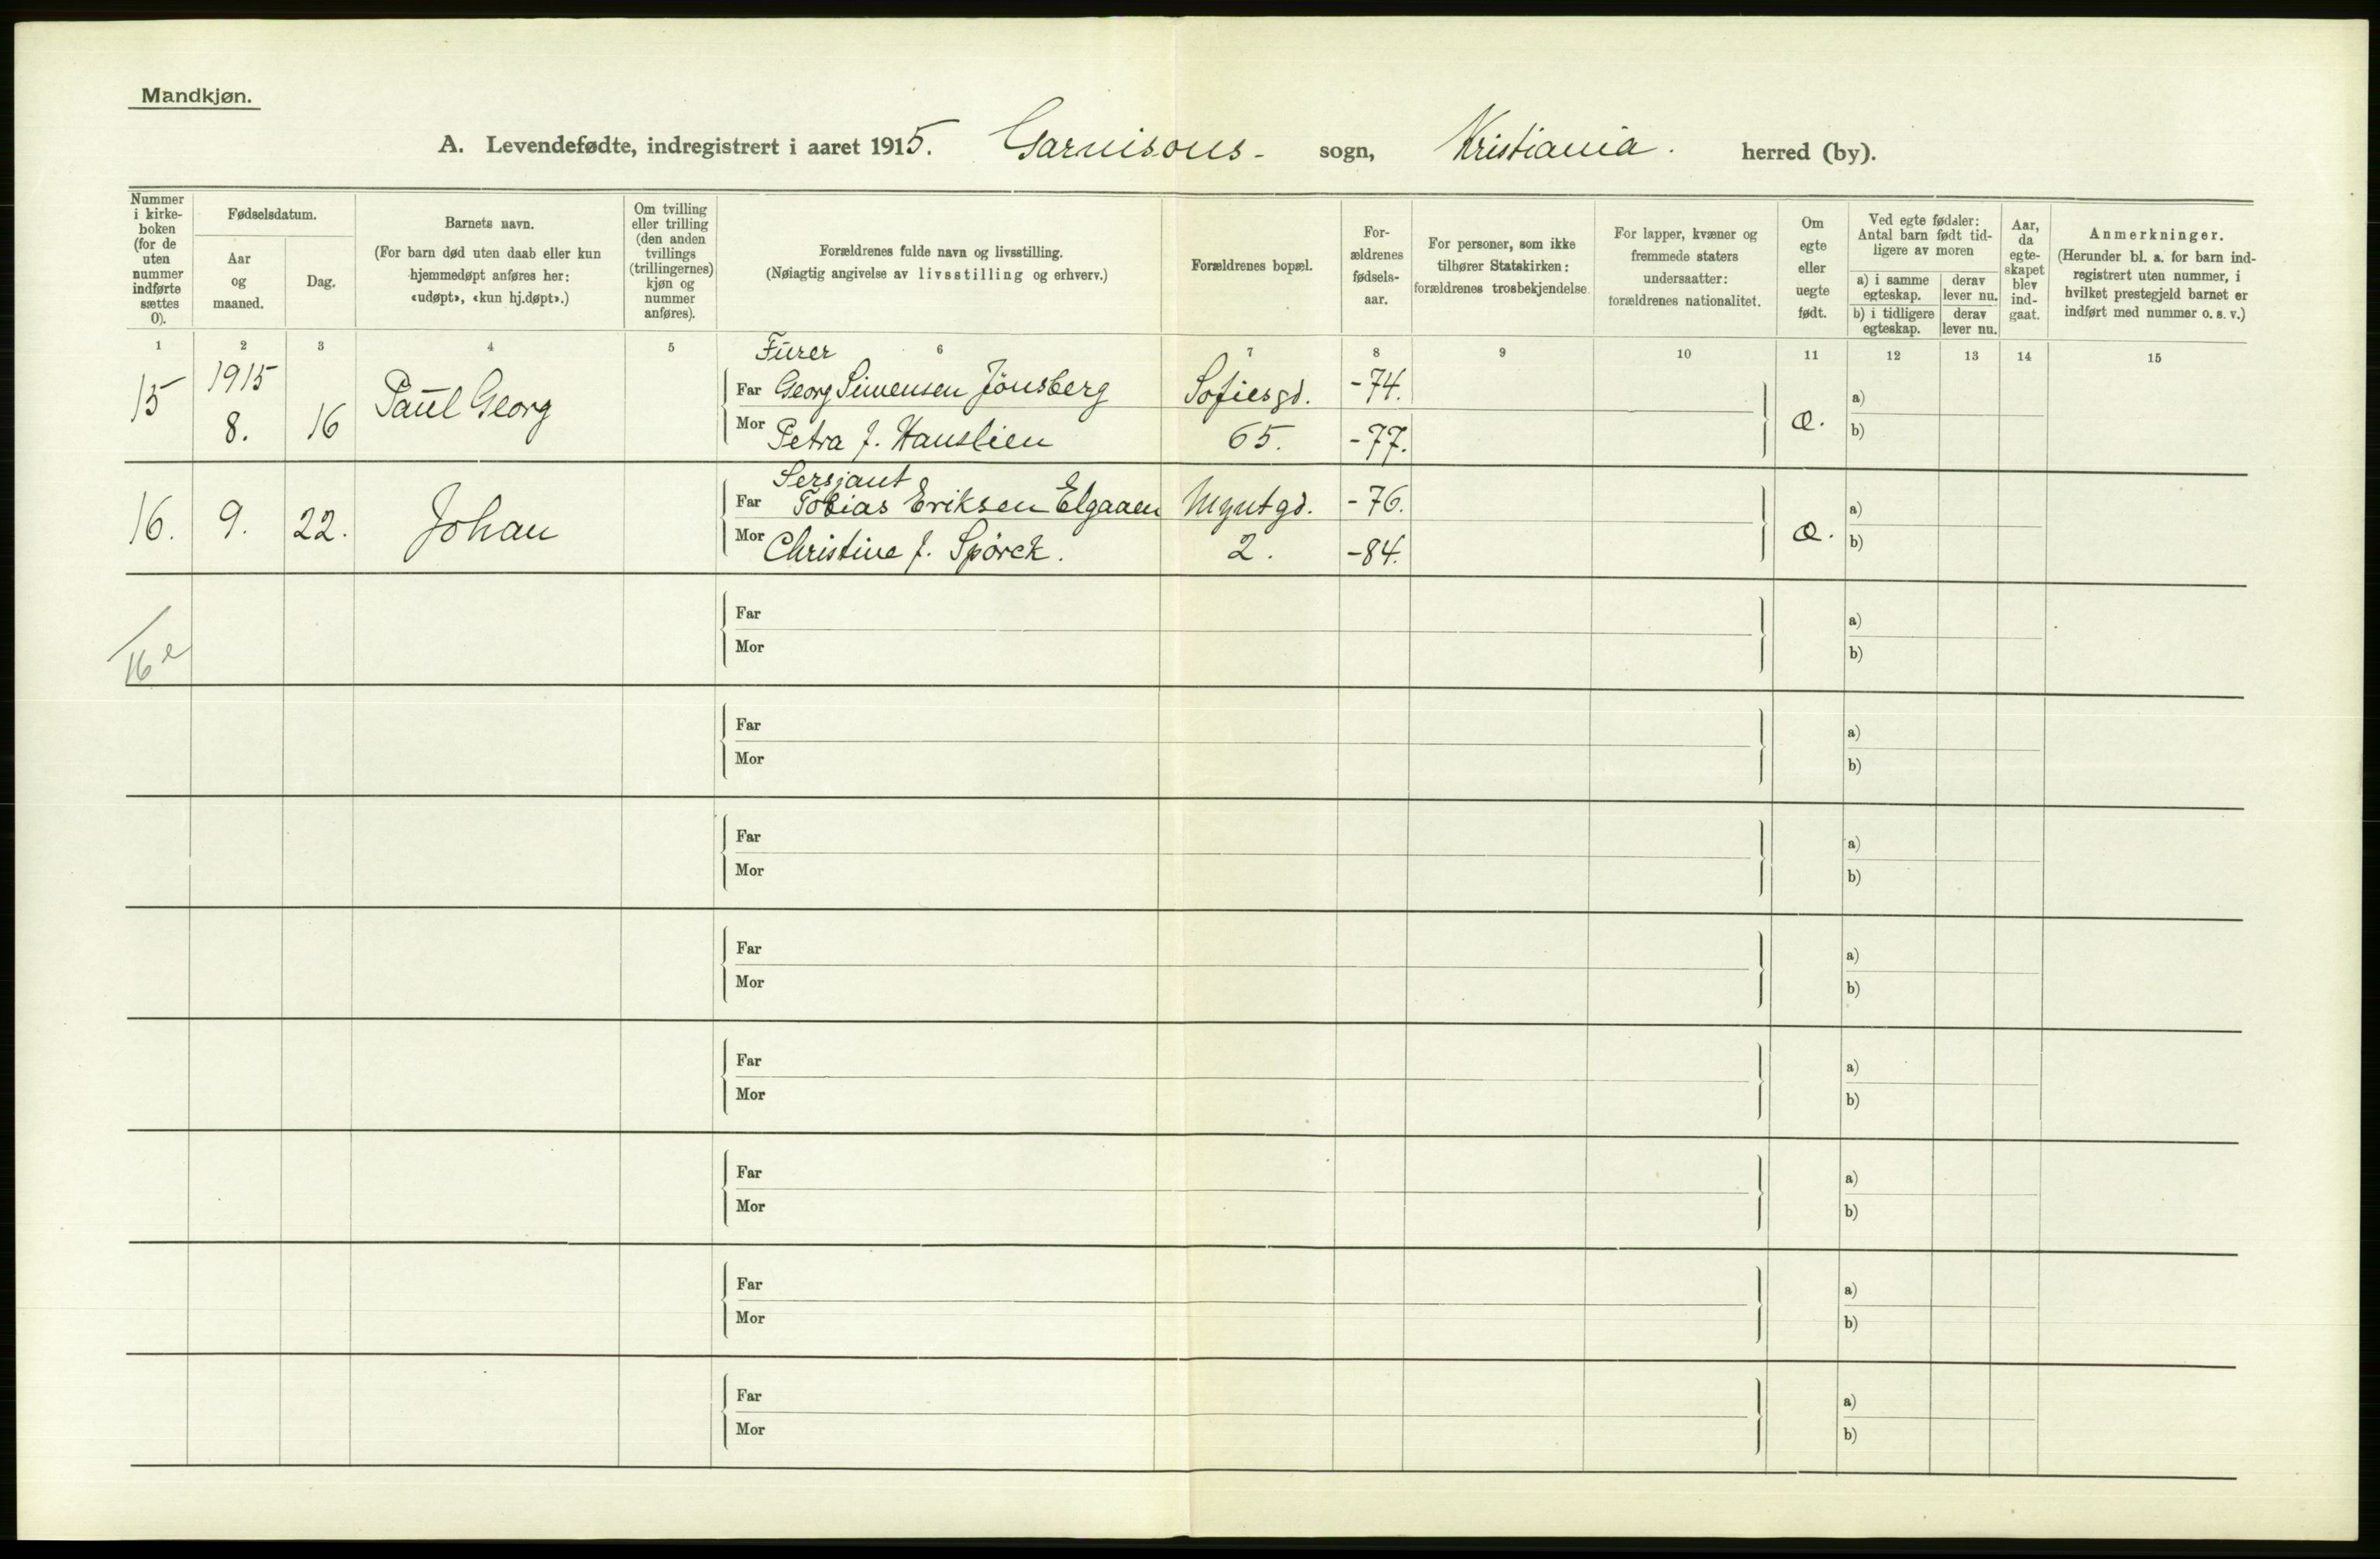 Mandkjøn.
A. Levendefødte, indregistrert i aaret 1915. Garnisons- sogn, Kristiania. herred (by).
Nummer i kirke- boken (for de uten nummer indførte sættes 0).
Fødselsdatum.
Aar og maaned.
Dag.
Barnets navn.
(For barn død uten daab eller kun hjemmedøpt anføres her: «udøpt», «kun hj.døpt».)
Om tvilling eller trilling (den anden tvillings (trillingernes) kjøn og nummer anføres).
Forældrenes fulde navn og livsstilling.
(Nøiagtig angivelse av livsstilling og erhverv.)
Forældrenes bopæl.
For- ældrenes fødsels- aar.
For personer, som ikke tilhører Statskirken: forældrenes trosbekjendelse.
For lapper, kvæner og fremmede staters undersaatter: forældrenes nationalitet.
Om egte eller uegte født.
Ved egte fødsler: Antal barn født tid- ligere av moren
a) i samme egteskap. derav lever nu.
b) i tidligere egteskap. derav lever nu.
Aar, da egte- skapet blev ind- gaat.
Anmerkninger.
(Herunder bl. a. for barn ind- registrert uten nummer, i hvilket prestegjeld barnet er indført med nummer o. s. v.)
1 2 3 4 5 6 7 8 9 10 11 12 13 14 15
Furer
15 1915 8. 16 Paul Georg Far Georg Simensen Jönsberg Sofiesgd. -74. æ. a)
Mor Petra f. Hauslien 65. -77. b)
Sersjant
16. 9. 22. Johan Far Tobias Eriksen Elgaaen Myntgd. -76. æ. a)
Mor Christine f. Spörck. 2. -84. b)
16 e
Far a)
Mor b)
Far a)
Mor b)
Far a)
Mor b)
Far a)
Mor b)
Far a)
Mor b)
Far a)
Mor b)
Far a)
Mor b)
Far a)
Mor b)